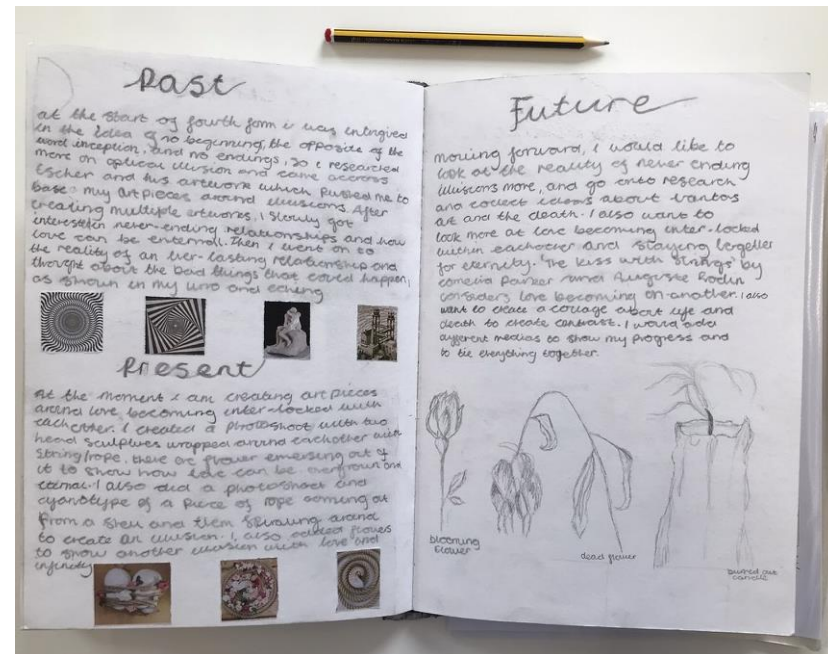 Past
at the start of fourth form i was intrigued
in the idea of no beginning, the opposite of the
word inception, and no endings, so i researched
more on optical illusion and came accross
Escher and his artwork which pushed me to
base my art pieces around illusions. After
creating multiple artworks, i slowly got
interested in never-ending relationships and how
love can be enternal. Then i went on to
the reality of an ever-lasting relationship and
thought about the bad things that could happen,
as shown in my lino and eching
Present
At the moment i am creating art pieces
around love becoming inter-locked with
eachother. I created a photoshoot with two
head sculptures wrapped around eachother with
string/rope. there are flower emersing out of
it to show how love can be overgrown and
eternal. I also did a photoshoot and
cyanotype of a piece of rope coming out
from a shell and them spiraling around
to create an illusion. I, also added flowers
to show another illusion with love and
infinity
Future
moving forward, i would like to
look at the reality of never ending
illusions more, and go onto research
and collect ideas about vanitas
art and the death. I also want to
look more at love becoming inter-locked
within eachother and staying together
for eternity. 'The kiss with strings' by
cornelia Parker and Auguste Rodin
considers love becoming on-another. i also
want to create a collage about life and
death to create contrast. I would add
different medias to show my progress and
to tie everything together.
blooming
flower
dead flower
burned out
candle